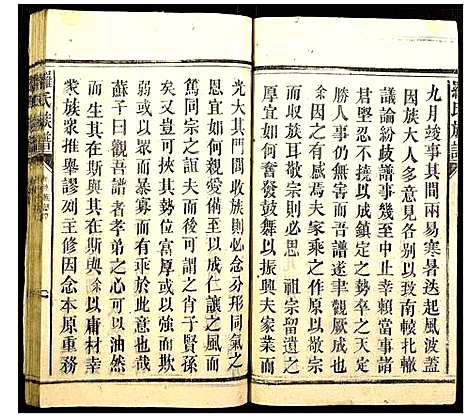 九月竣事其間兩易寒暑迭起風波蓋
因族大人多意見各別以致南轅北轍
議論紛歧譜事幾至中止幸賴當事諸
君堅忍不撓以成鎮定之勢卒之天定
勝人事仍舊而吾譜遂聿觀厥成也
余因之有感焉夫家乘之作所以敬宗
所以收族耳敬宗則必思 祖宗留遺之
厚宜如何奮發鼓舞以振興夫家業而
光大其門閭收族則必念分形同氣之
恩宜如何親愛備至以成仁讓之風而
篤同宗之誼夫而後可謂之肖子賢孫
矣又豈可挾其勢位富厚或以強而欺
弱或以眾而暴寡有乖於此意也哉
蘇子曰觀吾譜者孝弟之心可以油然
而生其在斯與其在斯與余以庸材幸
蒙族眾推舉謬列主修因念本原重務
羅氏族譜
羅氏族譜